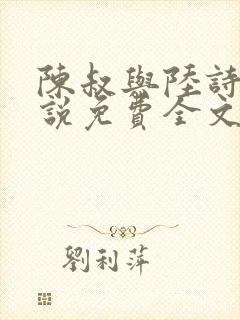 陳叔與陸詩
說免費全文
劉利萍